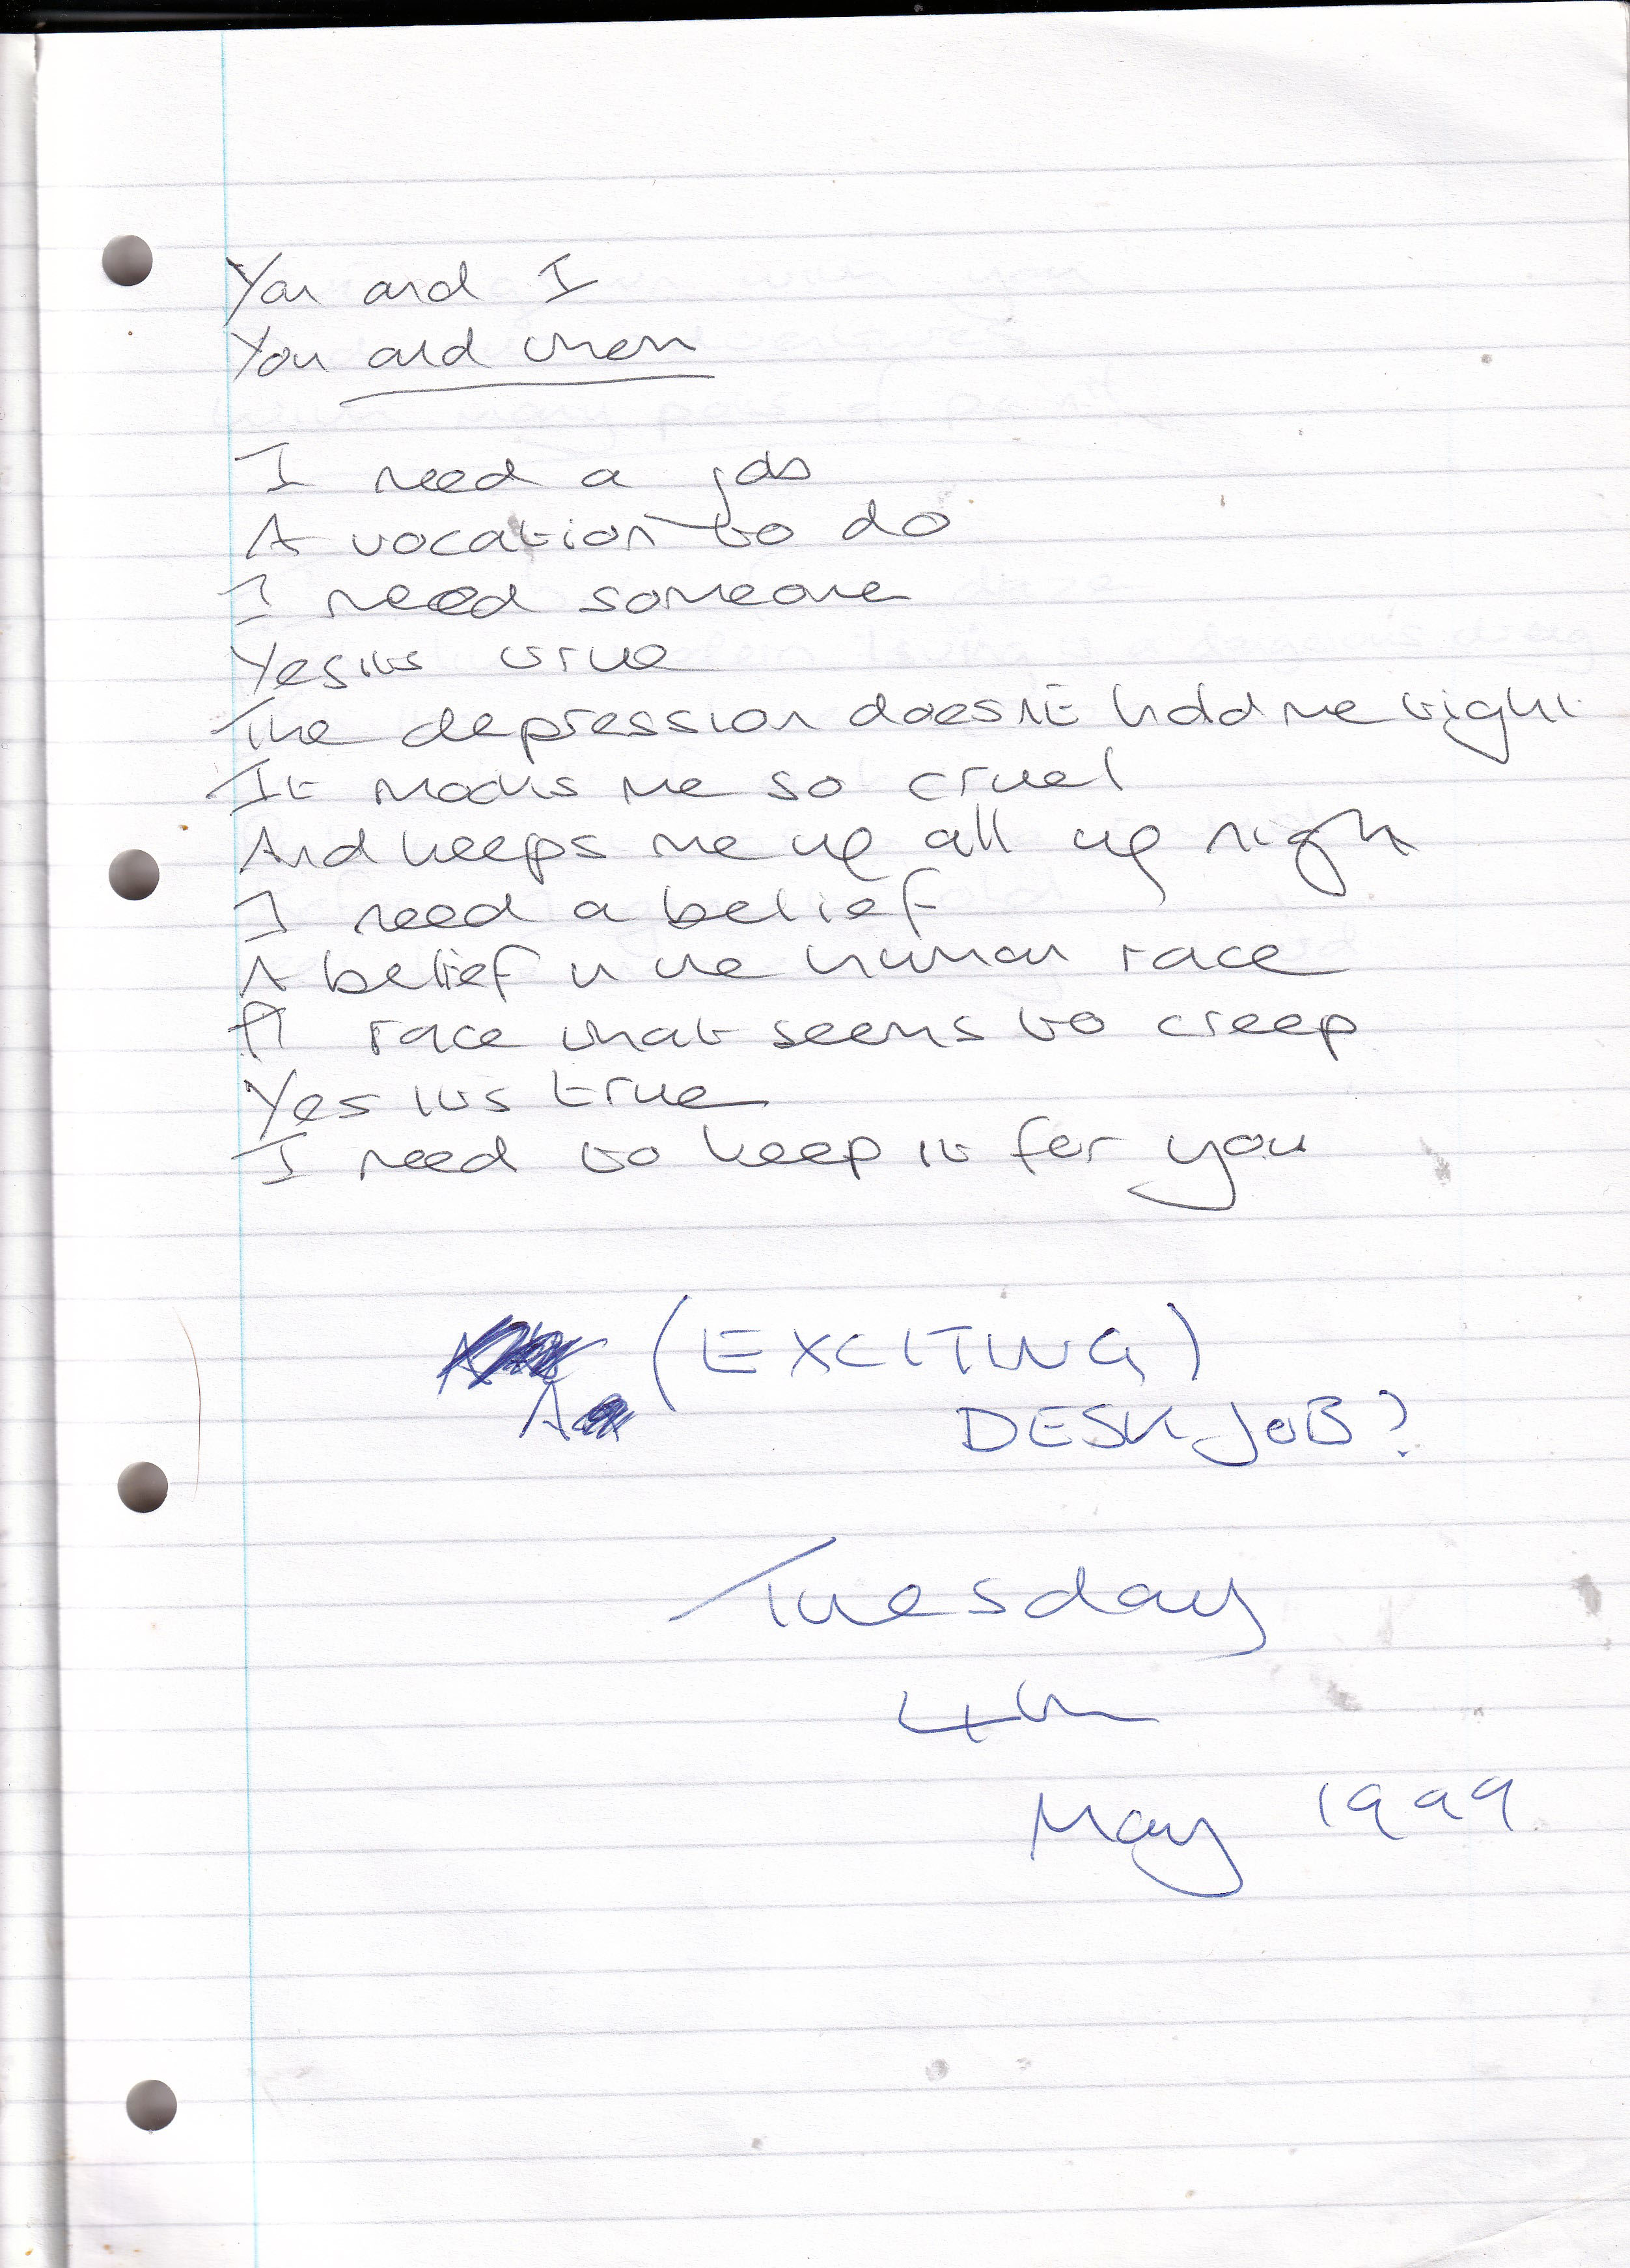 You and I
You and them
I need a job
A vocation to do
I need someone
Yes its true
The depression doesn't hold me tight
It mocks me so cruel
And keeps me up all up night
I need a belief
A belief in the human race
A race that seems to creep
Yes its true
I need to keep it for you
(EXCITING)
A
DESK JOB?
Tuesday
4th
May 1999